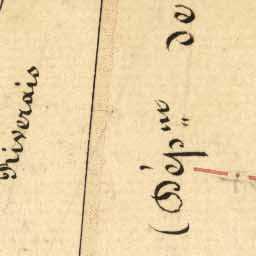 Riverais
(Dép.m de